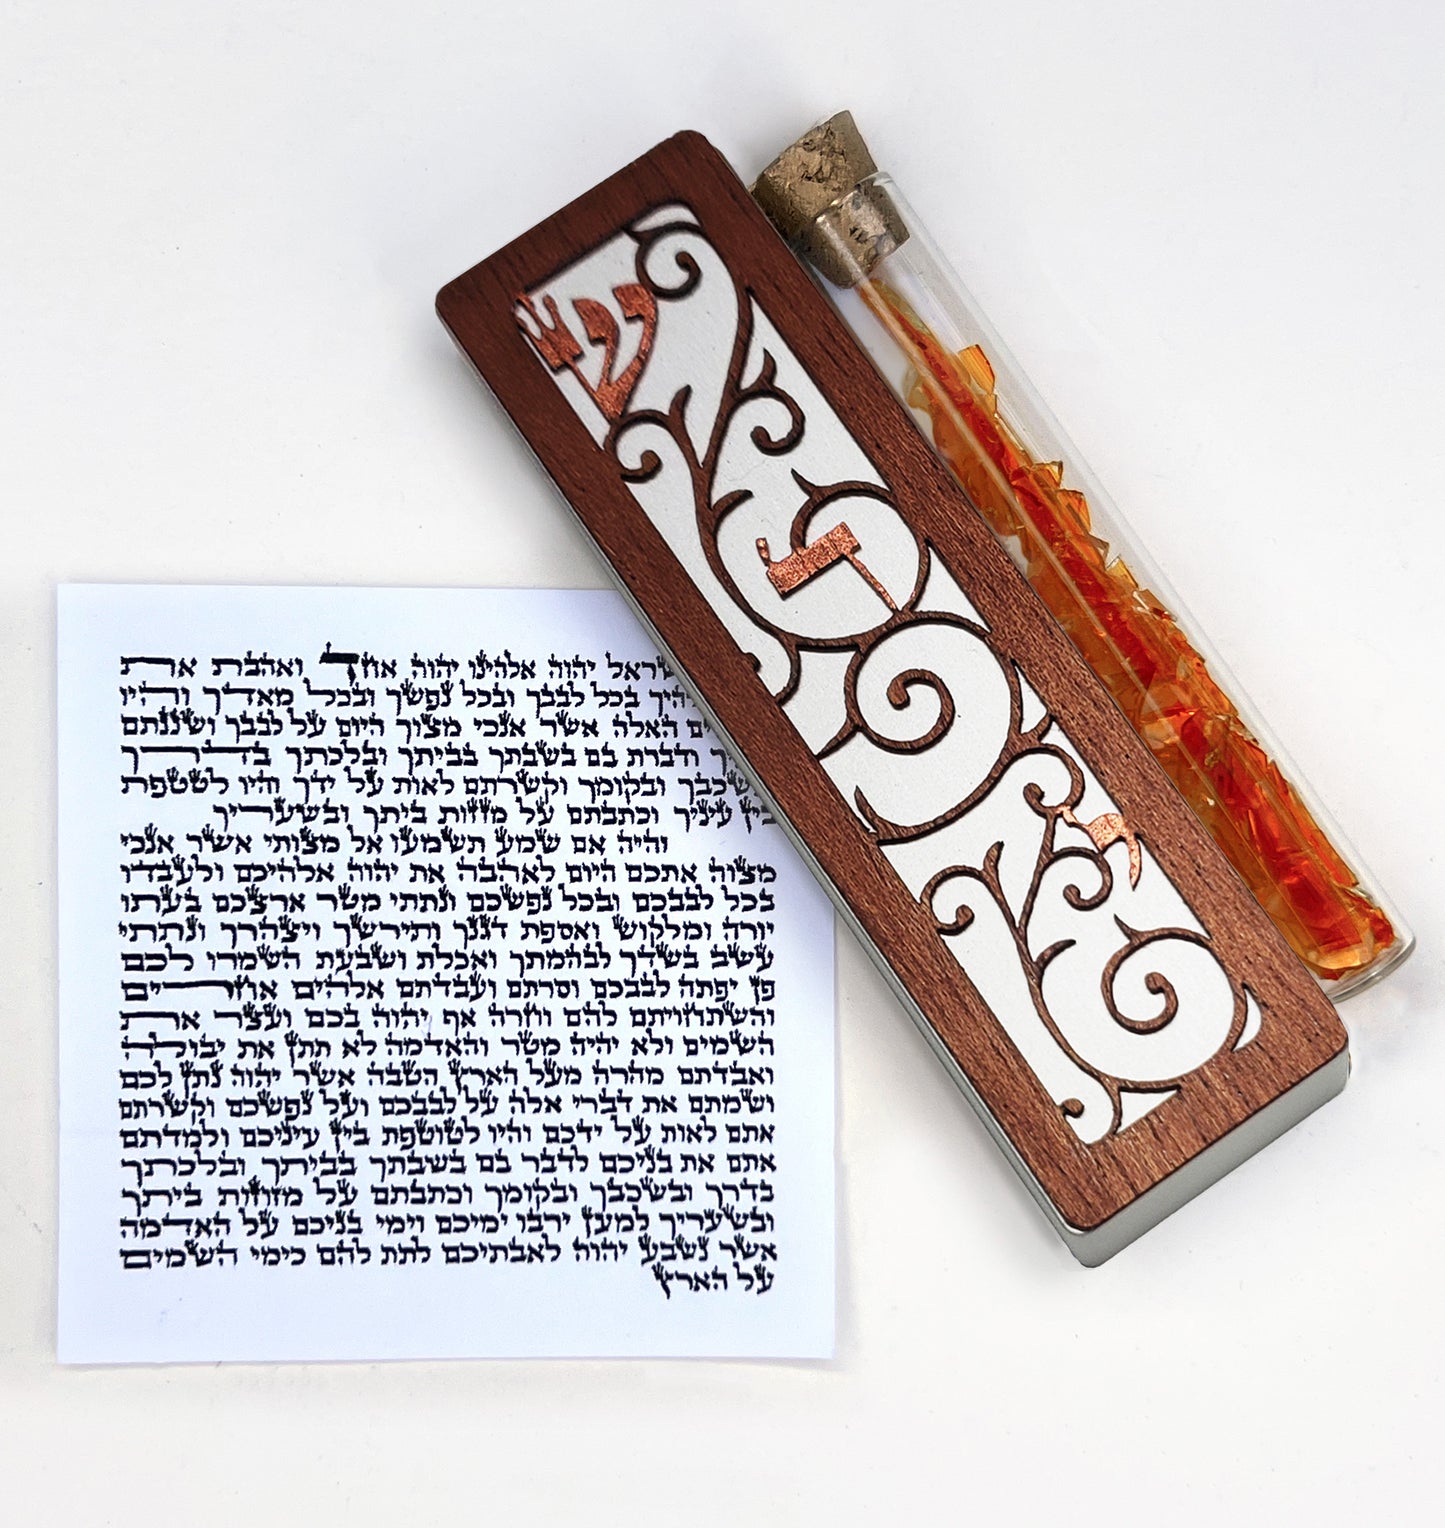 ש
ד
י
שראל יהוה אלהינו יהוה אחד ואהבת את
בכל לבבך ובכל נפשך ובכל מאדך והיו
האלה אשר אנכי מצוך היום על לבבך ושננתם
ודברת בם בשבתך בביתך ובלכתך בדרך
שכבך ובקומך וקשרתם לאות על ידך והיו לטטפת
בין עיניך וכתבתם על מזזות ביתך ובשעריך
והיה אם שמע תשמעו אל מצותי אשר אנכי
מצוה אתכם היום לאהבה את יהוה אלהיכם ולעבדו
בכל לבבכם ובכל נפשכם ונתתי מטר ארצכם בעתו
יורה ומלקוש ואספת דגנך ותירשך ויצהרך ונתתי
עשב בשדך לבהמתך ואכלת ושבעת השמרו לכם
פן יפתה לבבכם וסרתם ועבדתם אלהים אחרים
והשתחויתם להם וחרה אף יהוה בכם ועצר את
השמים ולא יהיה מטר והאדמה לא תתן את יבולה
ואבדתם מהרה מעל הארץ הטבה אשר יהוה נתן לכם
ושמתם את דברי אלה על לבבכם ועל נפשכם וקשרתם
אתם לאות על ידכם והיו לטוטפת בין עיניכם ולמדתם
אתם את בניכם לדבר בם בשבתך בביתך ובלכתך
בדרך ובשכבך ובקומך וכתבתם על מזוזות ביתך
ובשעריך למען ירבו ימיכם וימי בניכם על האדמה
אשר נשבע יהוה לאבתיכם לתת להם כימי השמים
על הארץ